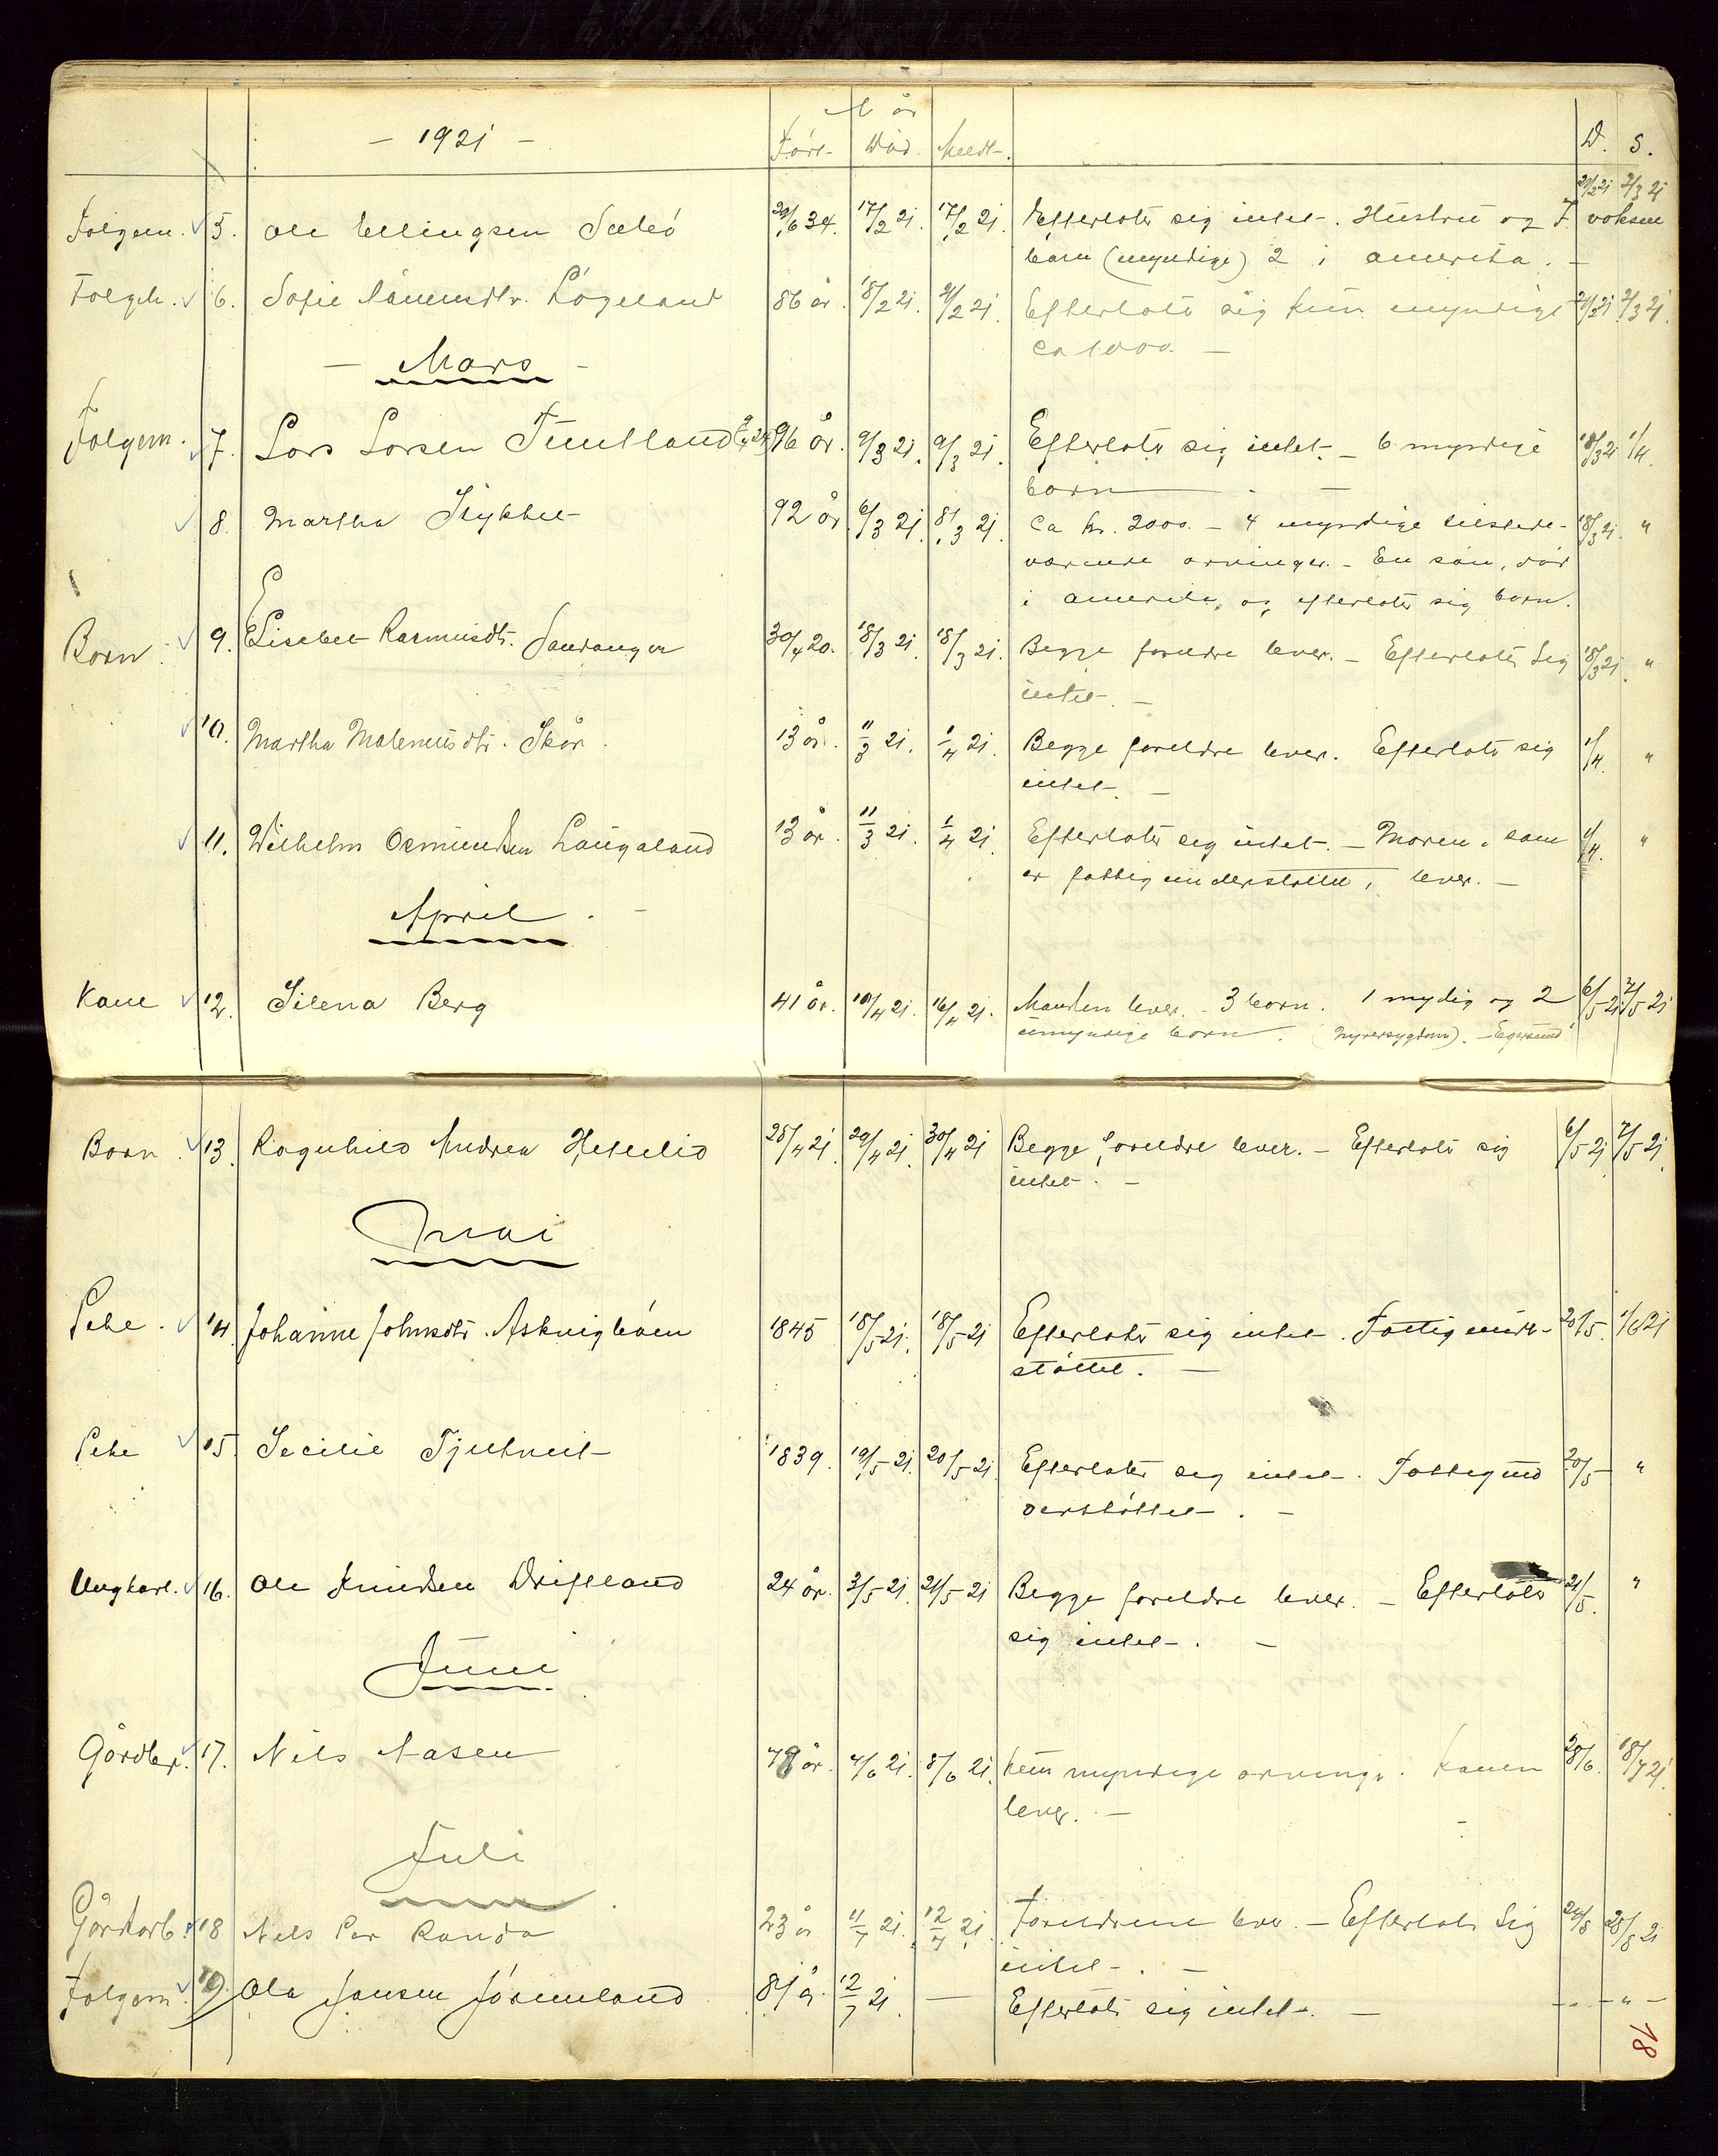 - 1921 - år
Født- Död Meldt- D. S.
Folgem. 5. Ole Ellingsen 29/6 34. 17/2 21. 17/2 21. Efterlater sig intet. Hustru og 7 voksne 21/2 21 2/3 21
barn (myndige) 2 i amerika. -
6. Sofie 86 år. 18/2 21. 21/2 21. Efterlater sig kun myndige 21/2 21 2/3 21.
ca 1000. -
- Mars -
Folgem. 7. Lars Larsen 96 år. 9/3 21. 9/3 21. Efterlater sig intet. - 6 myndige 18/3 21 1/4.
barn -
8. Martha 92 år 6/3 21. 8/3 21. Ca kr. 2000. - 4 myndige tilstede- 18/3 21. "
værende arvinger. - En søn, død
i amerika, og efterlater sig barn.
Barn. 9. Lisabet Rasmusdtr. Sandanger 30/4 20. 18/3 21. 18/3 21. Begge foreldre lever. - Efterlater sig 18/3 21. "
intet. -
10. Martha Malenusdtr. Skår. 13 år. 11/3 21. 1/4 21. Begge foreldre lever. Efterlater sig 1/4. "
intet. -
11. Wilhelm Osmundsen Laugaland 13 år. 11/3 21. 1/4 21. Efterlater sig intet. - Moren, som 1/4. "
er fattigunderstøttet, lever. -
April. -
Kone 12. Silena Berg 41 år. 10/4 21. 16/4 21. Manden lever. - 3 barn. 1 mydig og 2 6/5 21 7/5 21
umyndige barn. (Nyresygdom). - Egersund
Barn 13. Ragnhild Andrea Hetlelid 28/4 21. 29/4 21. 30/4 21 Begge foreldre lever. - Efterlater sig 6/5 21 7/5 21.
intet. -
Mai
Pike. 14. Johanne Johnsdtr. 1845 18/5 21. 18/5 21 Efterlater sig intet. Fattigunder- 20/5. 1/6 21
støttet. -
Pike 15. Secilie Tjetveit 1839. 19/5 21. 20/5 21. Efterlater sig intet. Fattigund 20/5 "
erstøttet. -
Ungkarl. 16. Ole Knudsen Drifland 24 år. 3/5 21. 21/5 21 Begge foreldre lever. - Efterlater 21/5. "
sig intet. -
Juni
Gårdbr. 17. Nils Aasen 78 år. 4/6 21. 8/6 21. Kun myndige arvinge. Konen 28/6. 18/7 21.
lever. -
Juli
Gårdarb. 18 Nils Per 23 år 11/7 21. 12/7 21. Foreldrene lever. - Efterlater sig 24/8 25/8 21
intet. -
Folgem. 19. Ole Jansen 81 år. 12/7 21. - Efterlater sig intet. - - " -
18